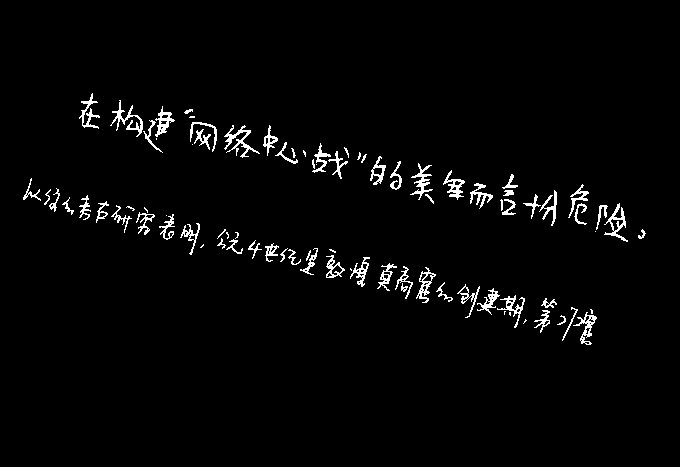 在构建“网络中心战”的美军而言十分危险。
以往的考古研究表明，公元4世纪是敦煌莫高窟的创建期，第272窟